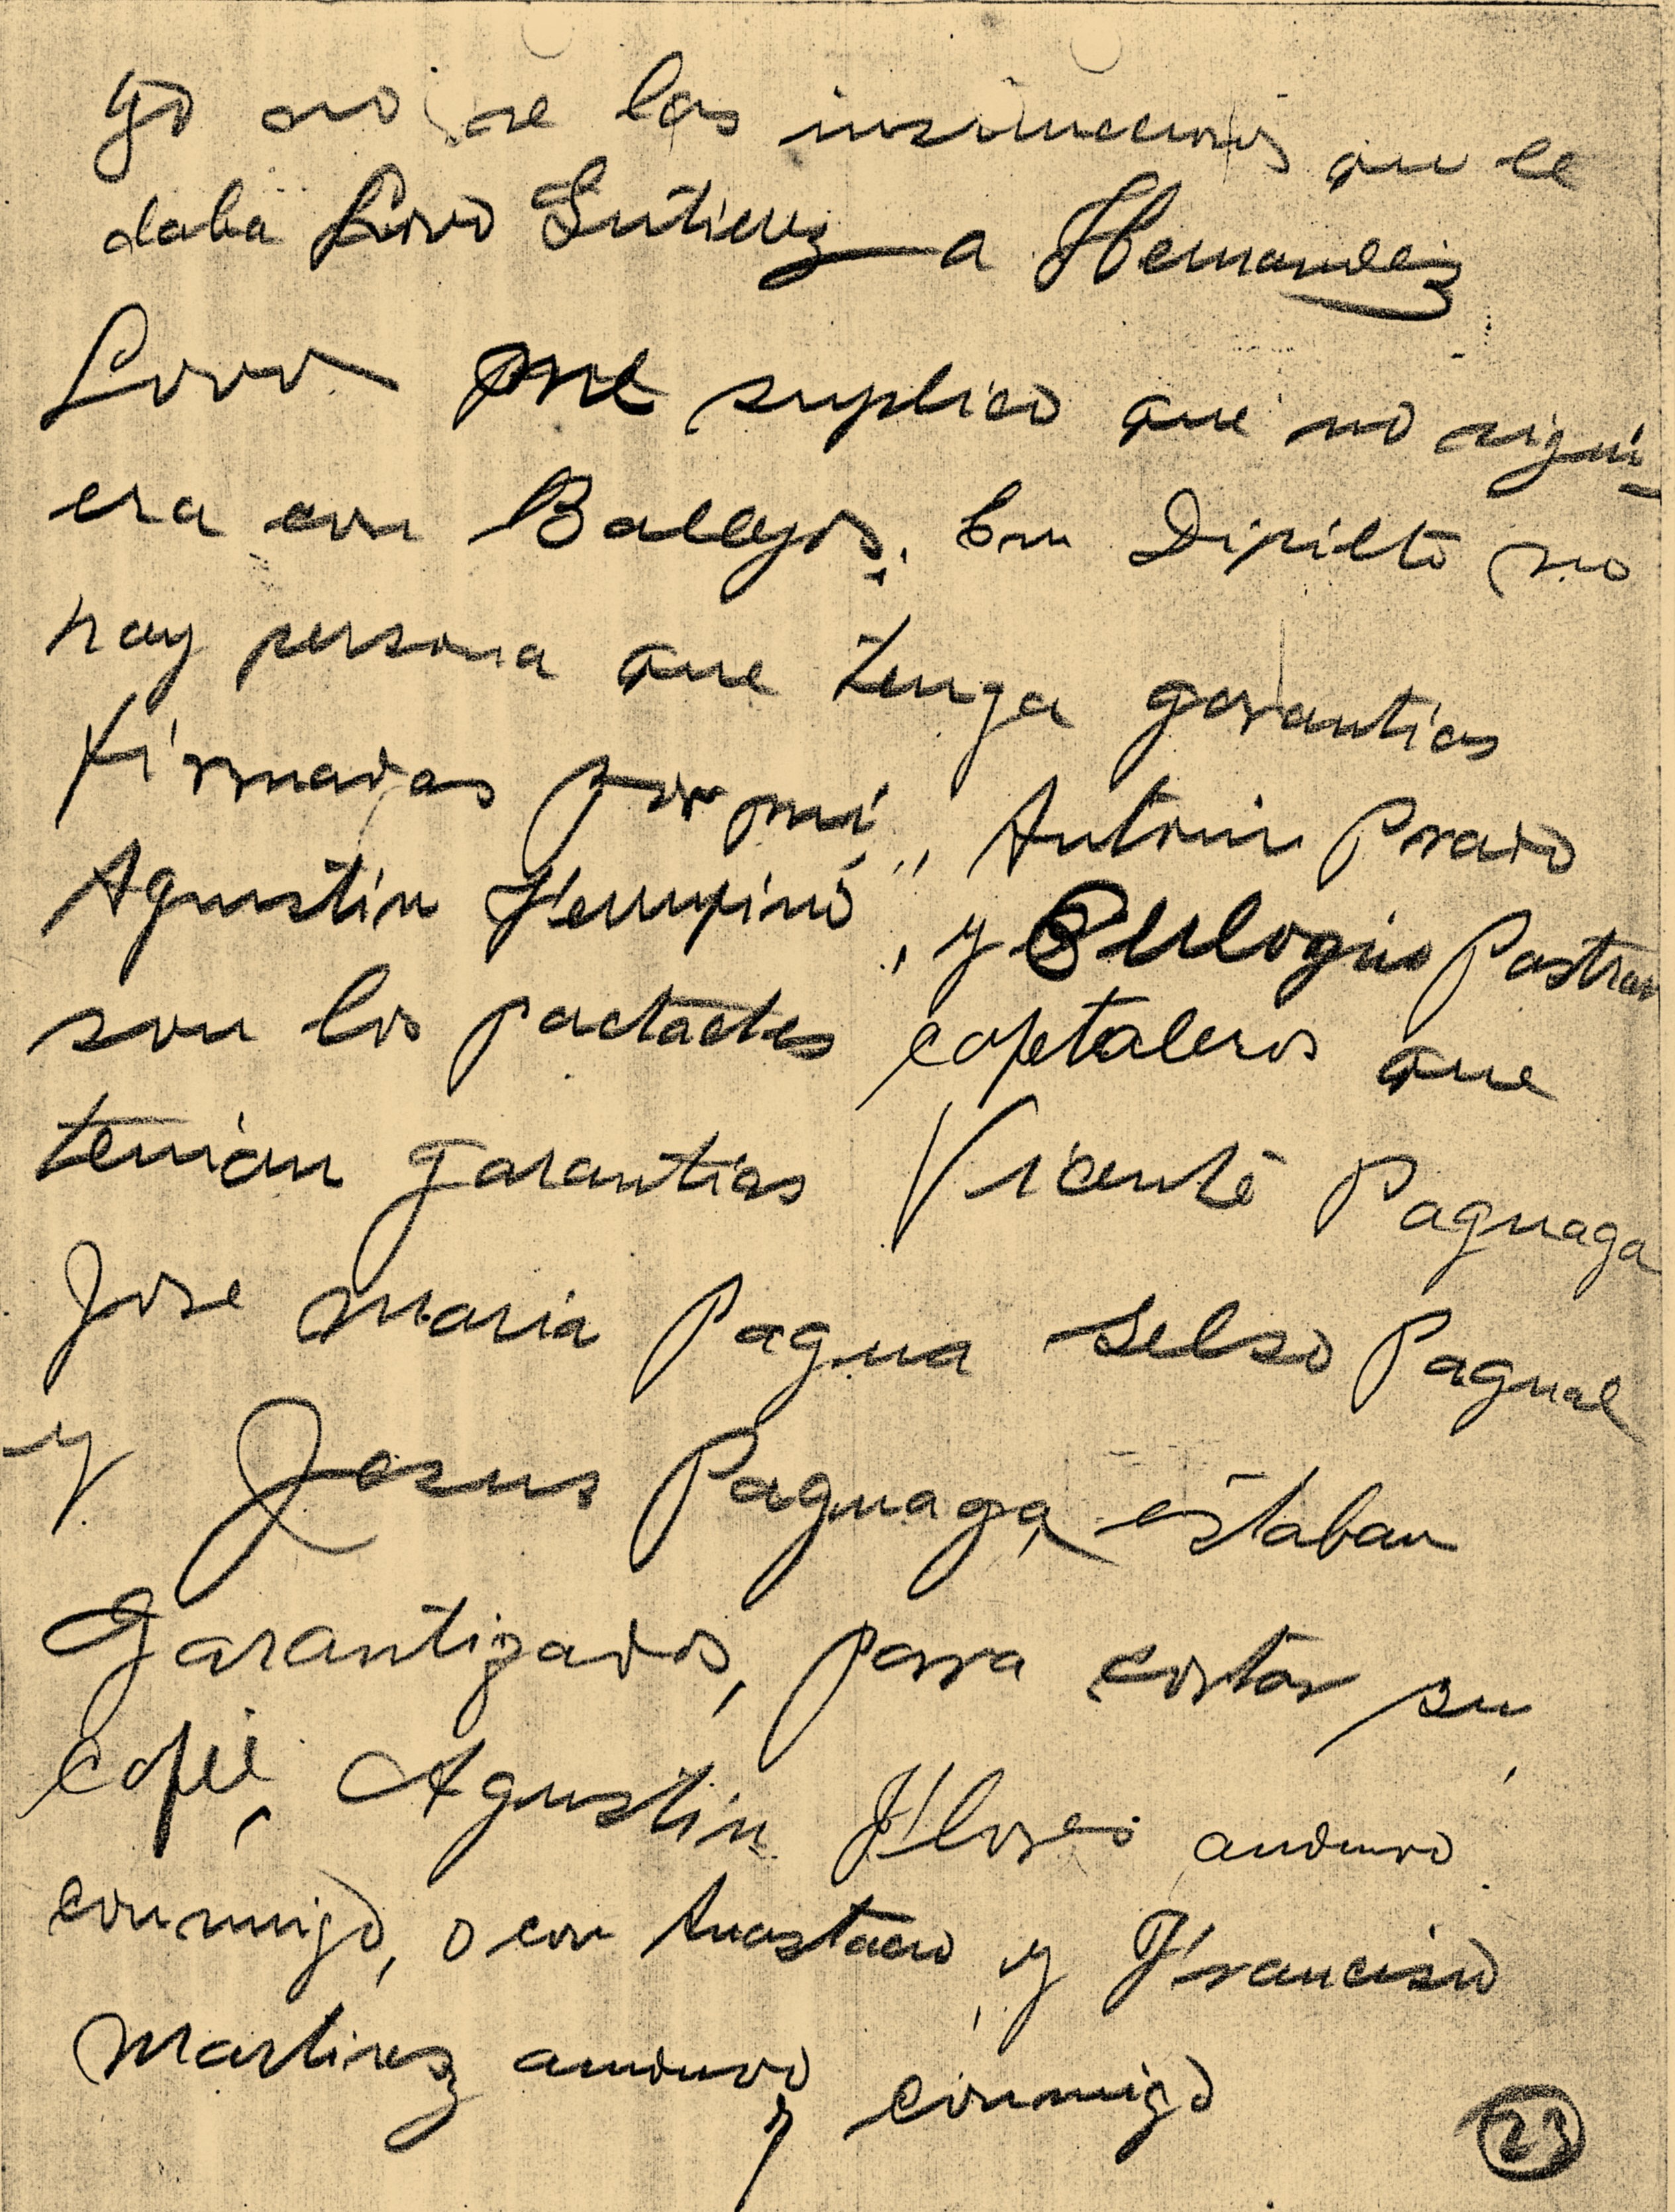 yo no se las instrucciones que le
daba Lovo Gutierrez a Hernandez
Lovo me suplico que no sigui
era con Ballejos. En Dipilto no
hay persona que tenga garantias
firmadas por mi, Antonio Prado
Agustin Ferrufino, y Eulogio Pastran
son los cafetaleros que
tenian garantias Vicente Paguaga
Jose Maria Pagua Selso Paguae
y Jesus Paguaga estaban
Garantizados, para cortar su
café, Agustin Flores anduvo
conmigo, o con Anastacio, y Francisco
Martines anduvo conmigo
23